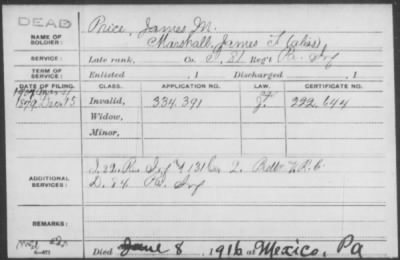 DEAD
Price, James M.
NAME OF SOLDIER:
Marshall, James T (alias)
SERVICE:
Late rank, Co. I, 81 Reg't Pa. Inf
TERM OF SERVICE:
Enlisted , 1 Discharged , 1
DATE OF FILING. CLASS. APPLICATION NO. LAW. CERTIFICATE NO.
1879 Dec 15 Invalid, 334.391 222.644
Widow,
Minor,
ADDITIONAL SERVICES:
Inf & 131 Co. 2. Batt V.R.C
D. 84 Pa. Inf
REMARKS:
Died June 8, 1916 at Mexico, Pa